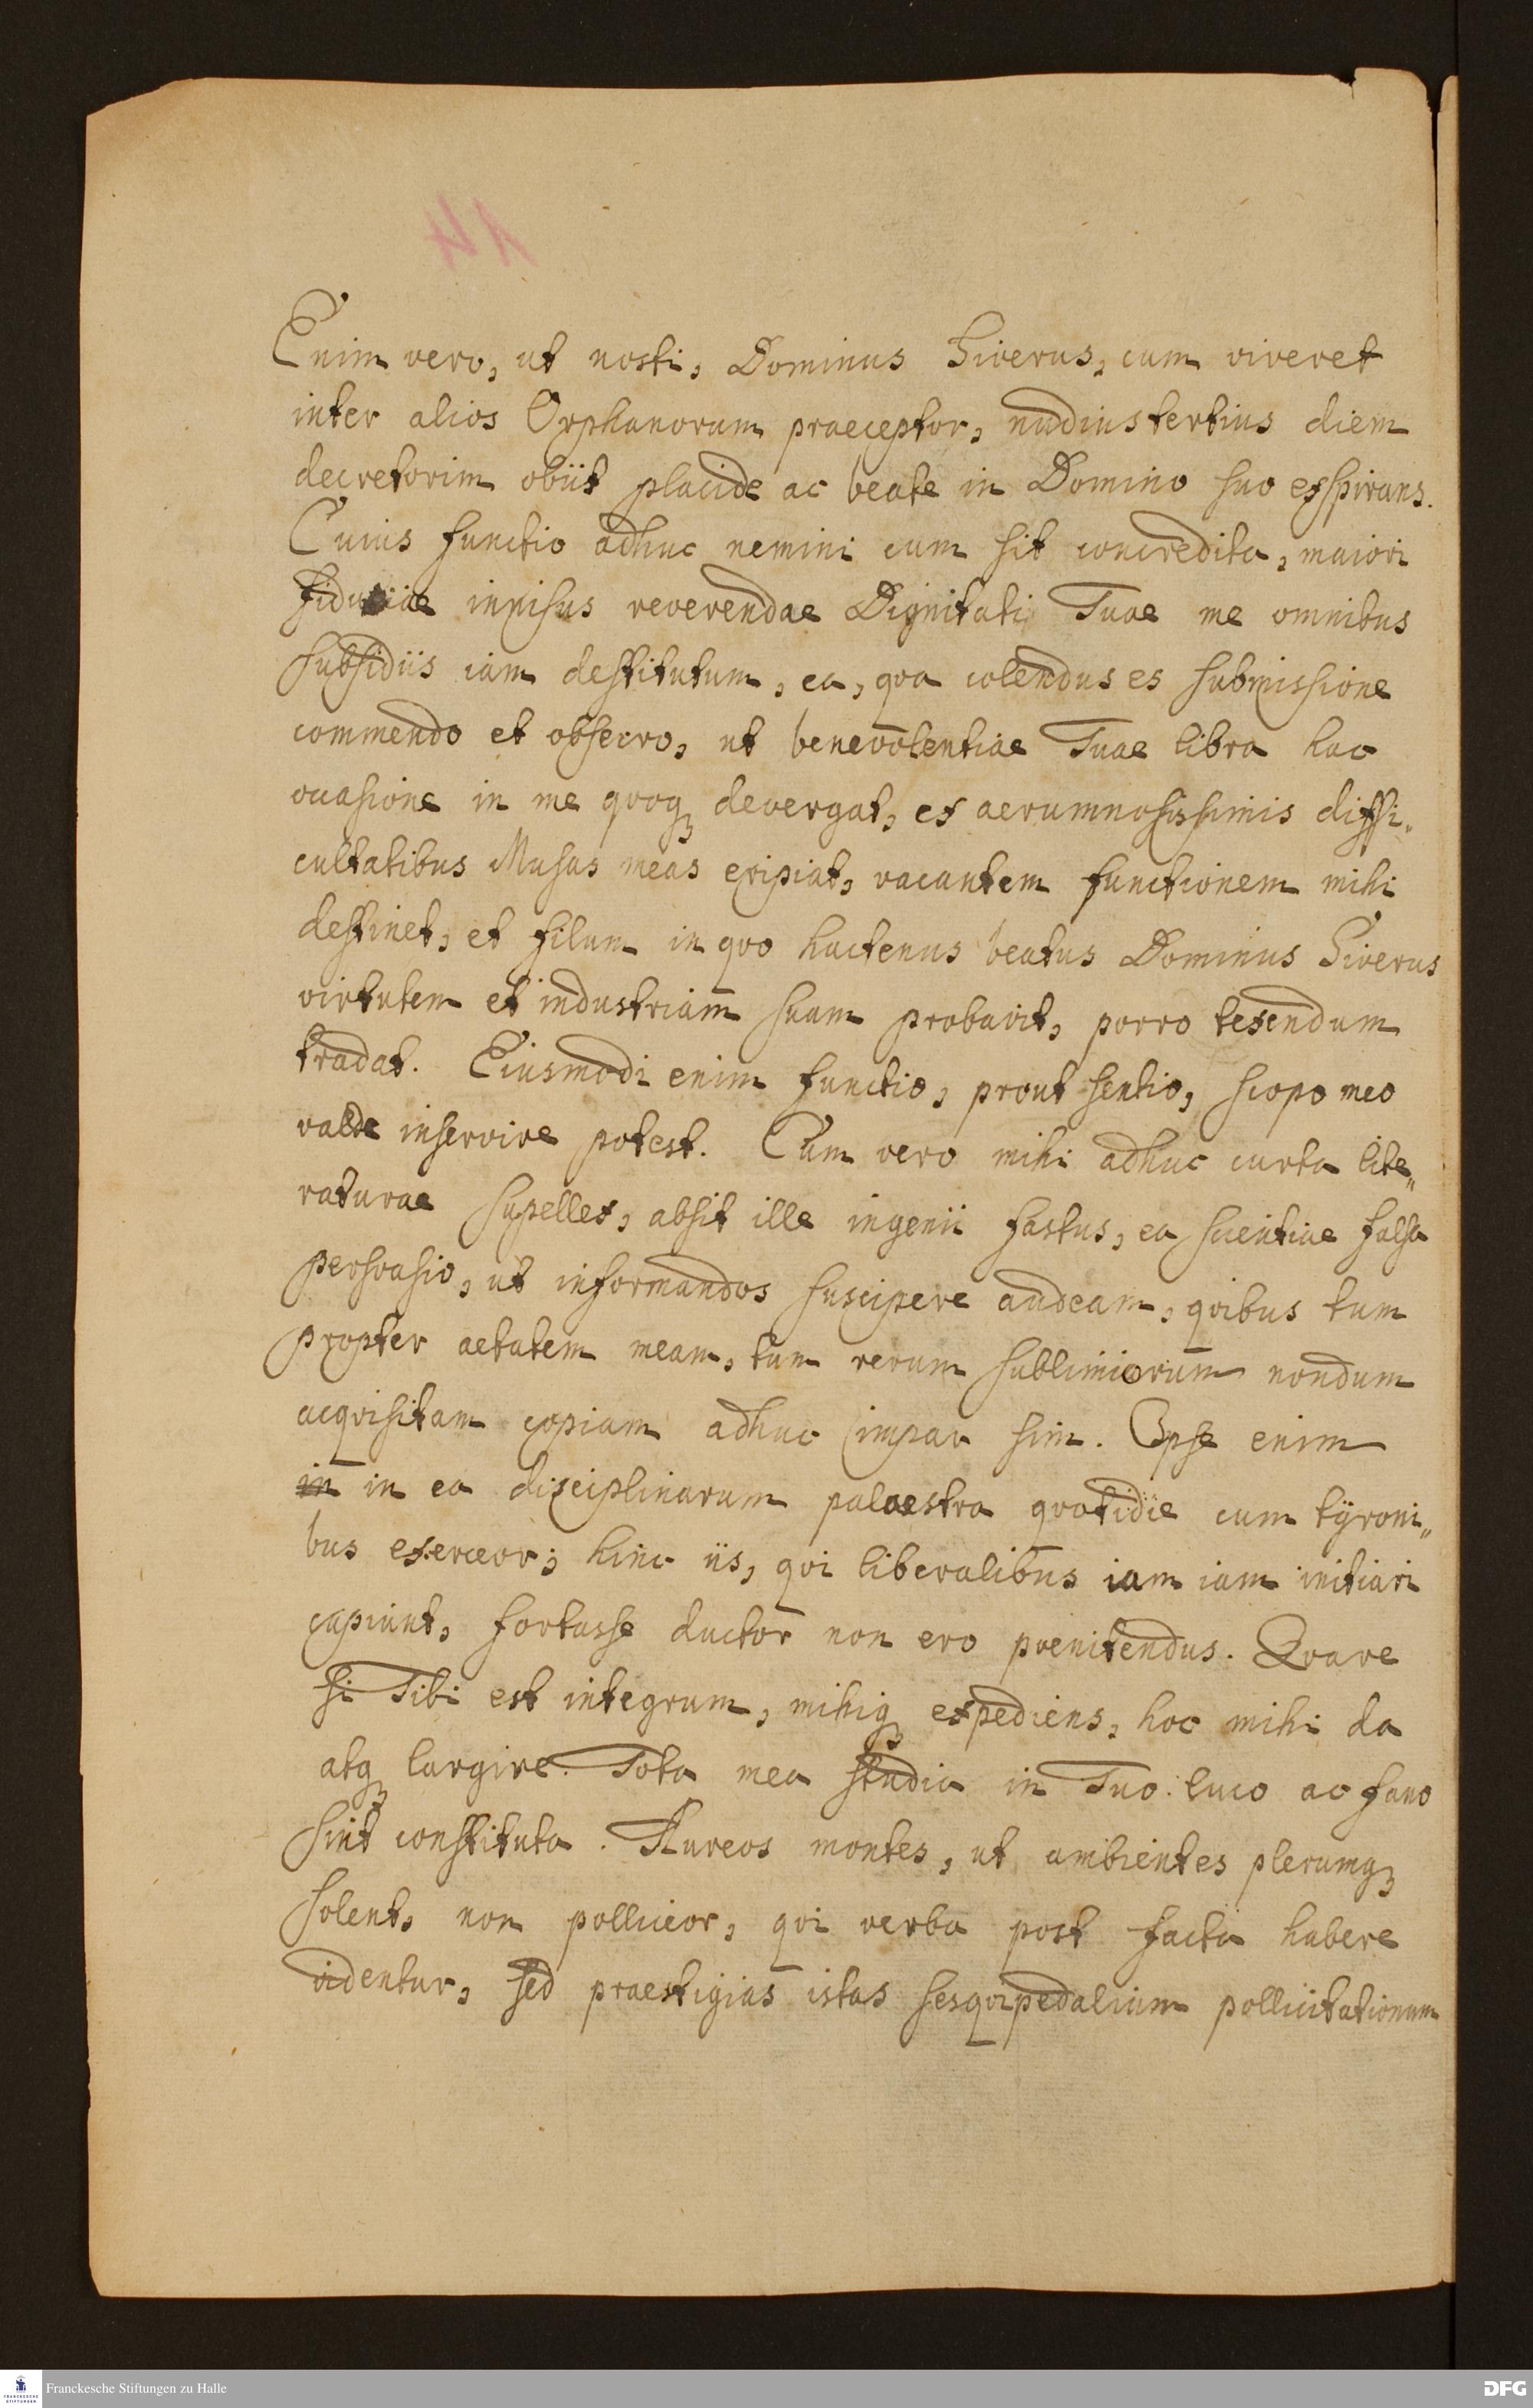 14
Enim vero, ut nosti, Dominus Siverus, cum viveret
inter alios Orphanorum praeceptor, nudiustertius diem
decretorim obiit placide ac beate in Domino suo exspirans.
Cuius functio adhuc nemini cum sit concredita, maiori
fiduciae innisus reverendae Dignitati Tuae me omnibus
subsidiis iam destitutum, ea, qva colendus es submissione
commendo et obsecro, ut benevolentiae Tuae libra hac
occasione in me qvoq devergat, ex aerumnosissimis diffi„
cultatibus Musas meas eripiat, vacantem functionem mihi
destinet, et filum in qvo hactenus beatus Dominus Siverus
virtutem et industriam suam probavit, porro texendum
tradat. Eiusmodi enim functio, prout sentio, scopo meo
valde inservire potest. Cum vero mihi adhuc curta lite„
raturae supellex, absit ille ingenii fastus, ea scientiae falsa
persvasio, ut informandos suscipere audeam, qvibus tum
propter aetatem meam, tum rerum sublimiorum nondum
acqvisitam copiam adhuc impar sim. Ipse enim
in in ea disciplinarum palaestra qvotidie cum tÿroni„
bus exerceor; hinc iis, qvi liberalibus iam iam initiari
cupiunt, fortasse ductor non ero poenitendus. Qvare
si Tibi est integrum, mihiq expediens, hoc mihi da
atq largire. Tota mea studia in Tuo luco ac fano
sint constituta. Aureos montes, ut ambientes plerumq
solent, non polliceor, qvi verba post facta habere
videntur, sed praestigias istas sesqvipedalium pollicitationum
Franckesche Stiftungen zu Halle
FRANCKESCHE
STIFTUNGEN
DFG